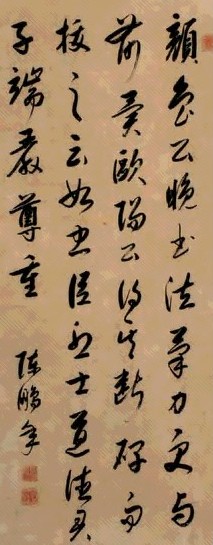 顏魯公晚書法筆力更与
前異歐陽公得其斷碑而
跋之云如忠臣烈士道德君
子端嚴尊重
陳鵬年